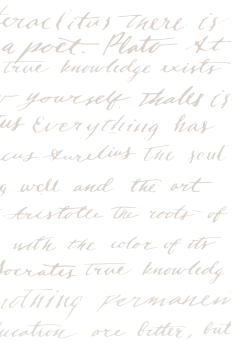 eraclitus There is
a poet. Plato At
true knowledge exists
yourself Thales is
us Everything has
cus Aurelius The soul
g well and the art
Aristotle the roots of
with the color of its
Socrates True knowledg
nothing permanen
ucation are bitter, but